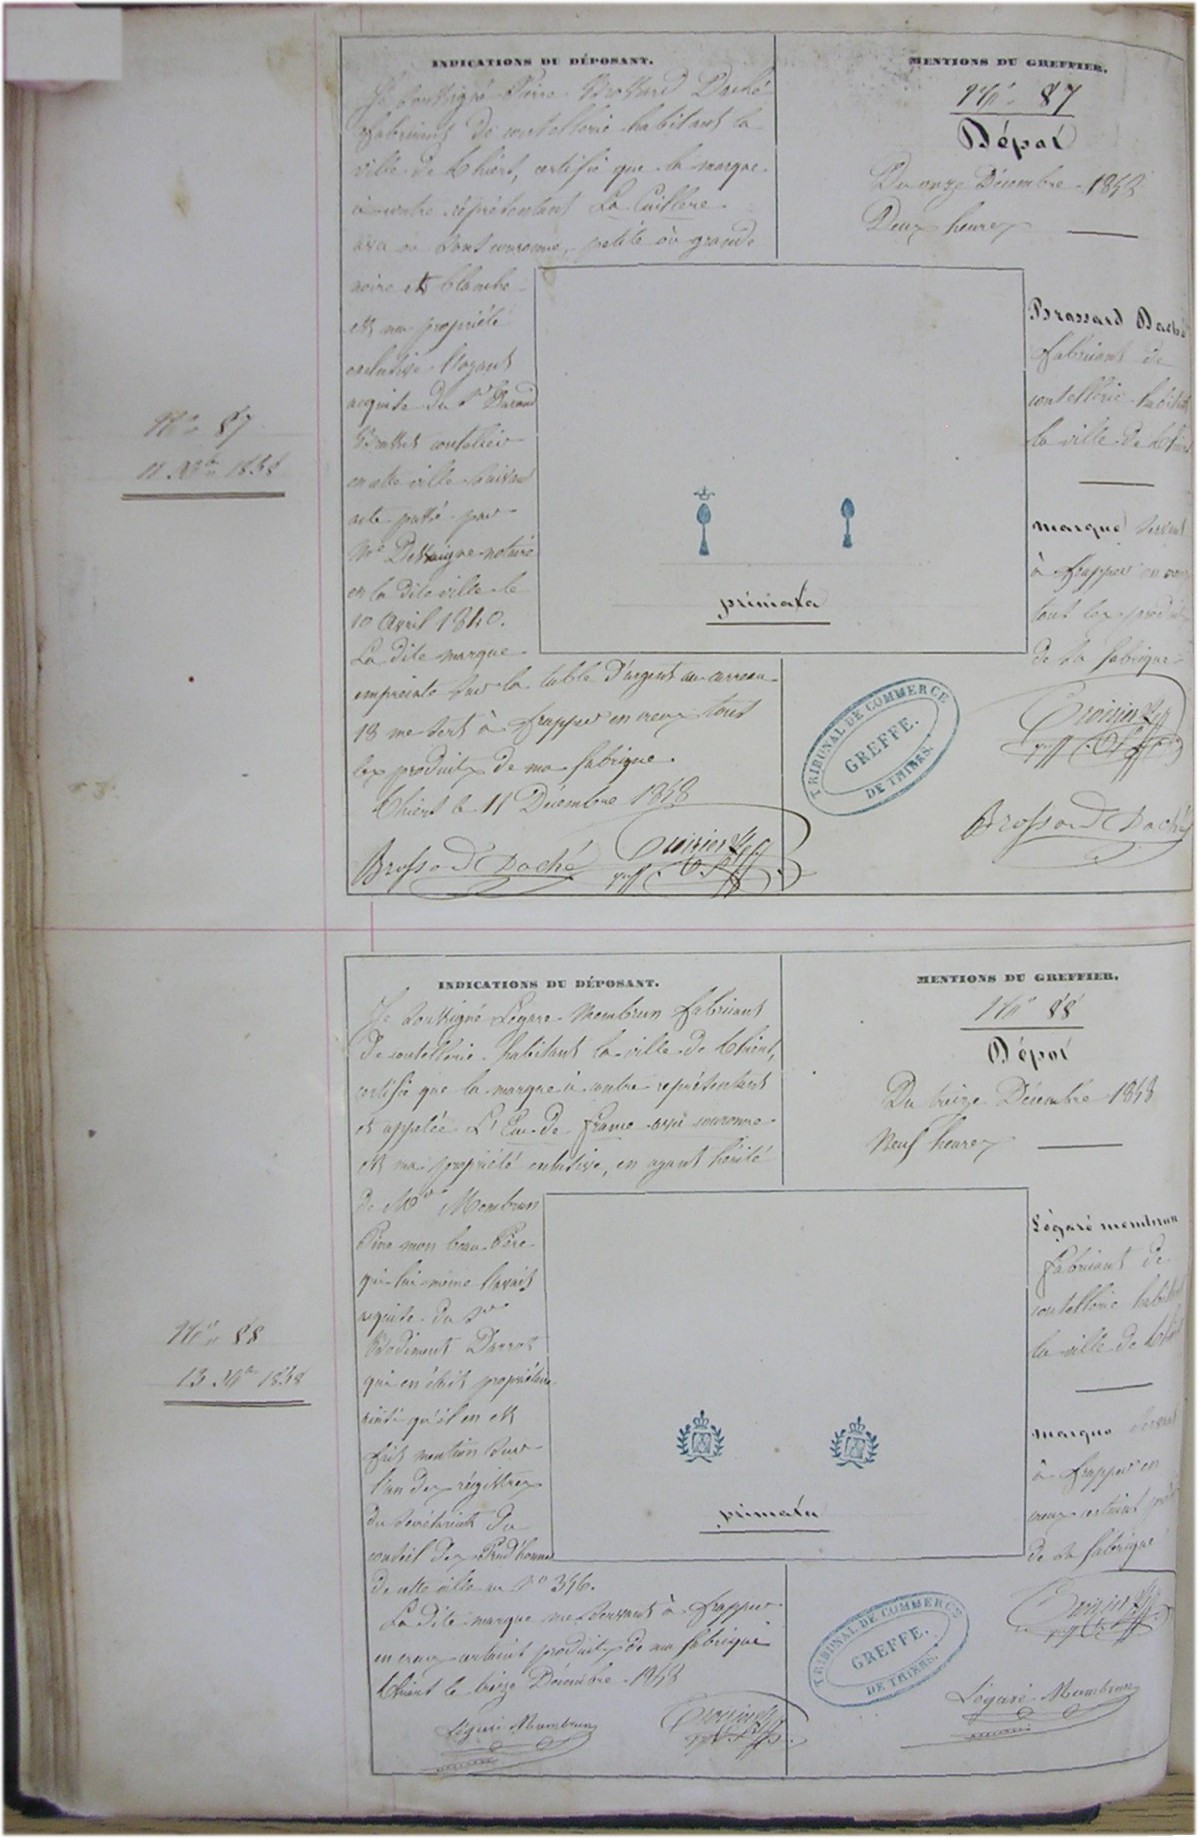 INDICATIONS DU DÉPOSANT.
Je soussigné Pierre Brossard Daché
fabricant de coutellerie habitant la
ville de Thiers, certifie que la marque
ci-contre représentant La Cuillère
avec ou sans couronne, petite ou grande
noire et blanche
est ma propriété
exclusive l'ayant
acquise du Sr
coutelier
en cette ville suivant
acte passé par
Me notaire
en la dite ville le
10 Avril 1840.
La dite marque
empreinte sur la table d'argent au carreau
18 me sert à frapper en creux tous
les produits de ma fabrique.
Thiers le 11 Décembre 1858
Brossard Daché
MENTIONS DU GREFFIER.
No 87
Dépot
Du onze Décembre 1858
Deux heures
primata
Brossard Daché
fabricant de
coutellerie habitant
la ville de Thiers
marque servant
à frapper en creux
tous les produits
de sa fabrique
TRIBUNAL DE COMMERCE
GREFFE.
DE THIERS.
Brossard Daché
No 87
11 Xbre 1858
INDICATIONS DU DÉPOSANT.
Je soussigné Légaré Mambrun fabricant
de coutellerie habitant la ville de Thiers,
certifie que la marque ci contre représentant
et appelée L'Ecu de france avec couronne
est ma propriété exclusive, en ayant hérité
de Mr Mambrun
Père mon beau-Père
qui lui-même l'avait
acquise du Sr
qui en était propriétaire
ainsi qu'il en est
fait mention sur
l'un des régistres
du secrétariat du
conseil des Prud'hommes
de cette ville au No 356.
La dite marque me servant à frapper
en creux certains produits de ma fabrique
Thiers le treize Décembre 1858
Légaré Mambrun
MENTIONS DU GREFFIER.
No 88
Dépot
Du treize Décembre 1858
Neuf heures
primata
Légaré mambrun
fabricant de
coutellerie habitant
la ville de Thiers
marque servant
à frapper en
creux certains produits
de sa fabrique
TRIBUNAL DE COMMERCE
GREFFE.
DE THIERS.
Légaré Mambrun
No 88
13 Xbre 1858